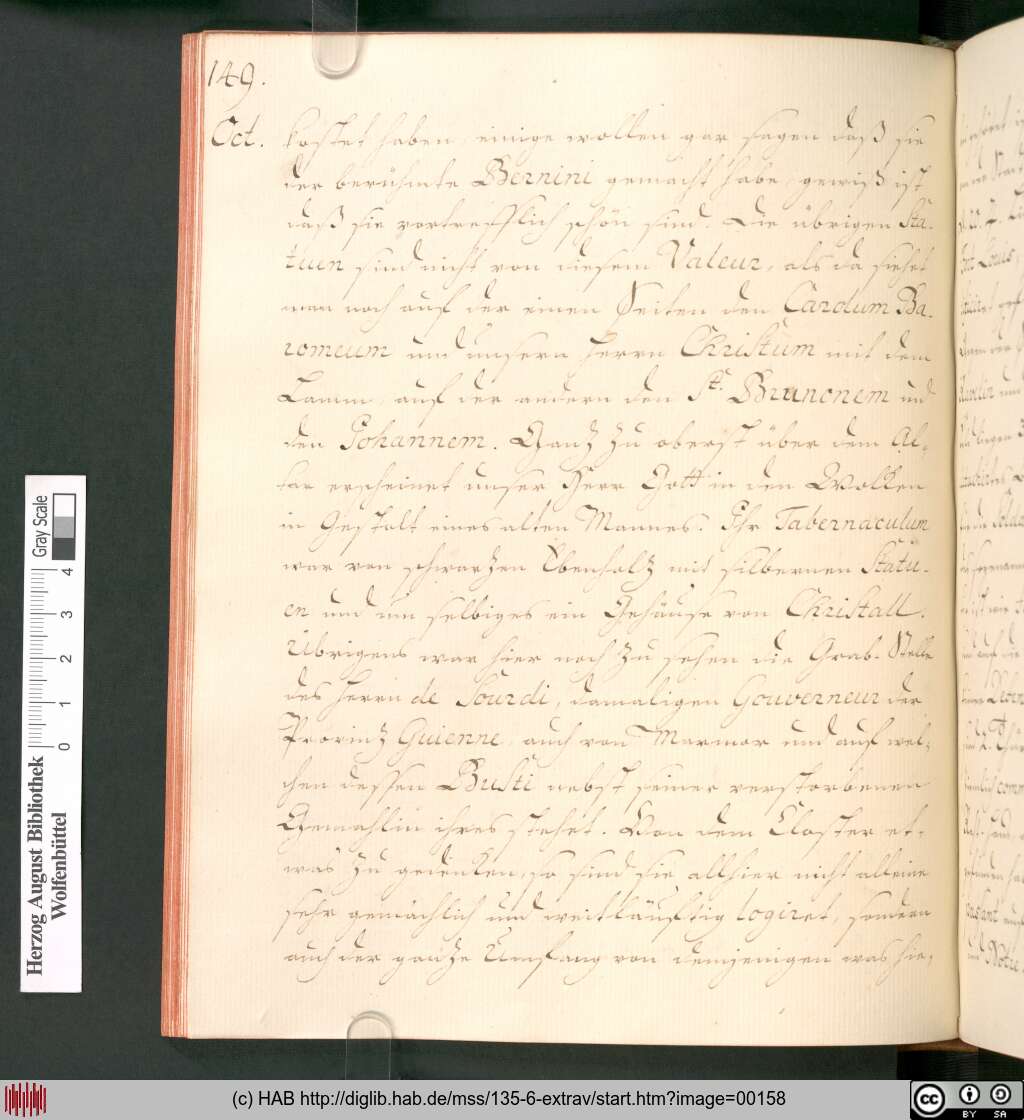 149.
Oct. kostet haben, einige wollen gar sagen daß sie
der berühmte Bernini gemacht habe, gewiß ist
daß sie vortrefflich schön sind. Die übrigen Sta-
tuen sind nicht von diesem Valeur, als da siehet
man noch auf der einen Seiten den Carolum Ba-
romeum und unsern Herrn Christum mit dem
Lamm, auf der andern den St. Brunonem und
den Johannem. Ganz zu oberst über dem Al-
tar erscheinet unser Herr Gott in den Wolken
in Gestalt eines alten Mannes. Ihr Tabernaculum
war von schwarzen Ebenholz mit silbernen Statu-
en und um selbiges ein Gehäuse von Christall.
Übrigens war hier noch zu sehen die Grab-Stelle
des Herrn de Sourdi, damaligen Gouverneur der
Provinz Guienne, auch von Marmor und auf wel-
chen dessen Busti nebst seiner verstorbenen
Gemahlin ihres stehet. Von dem Closter et-
was zu gedenken, so sind sie allhier nicht alleine
sehr gemächlich und weitläuftig logiret, sondern
auch der ganze Umfang von demjenigen was hie-
Herzog August Bibliothek
Wolfenbüttel
0 1 2 3 4
Gray Scale
(c) HAB http://diglib.hab.de/mss/135-6-extrav/start.htm?image=00158
cc BY SA